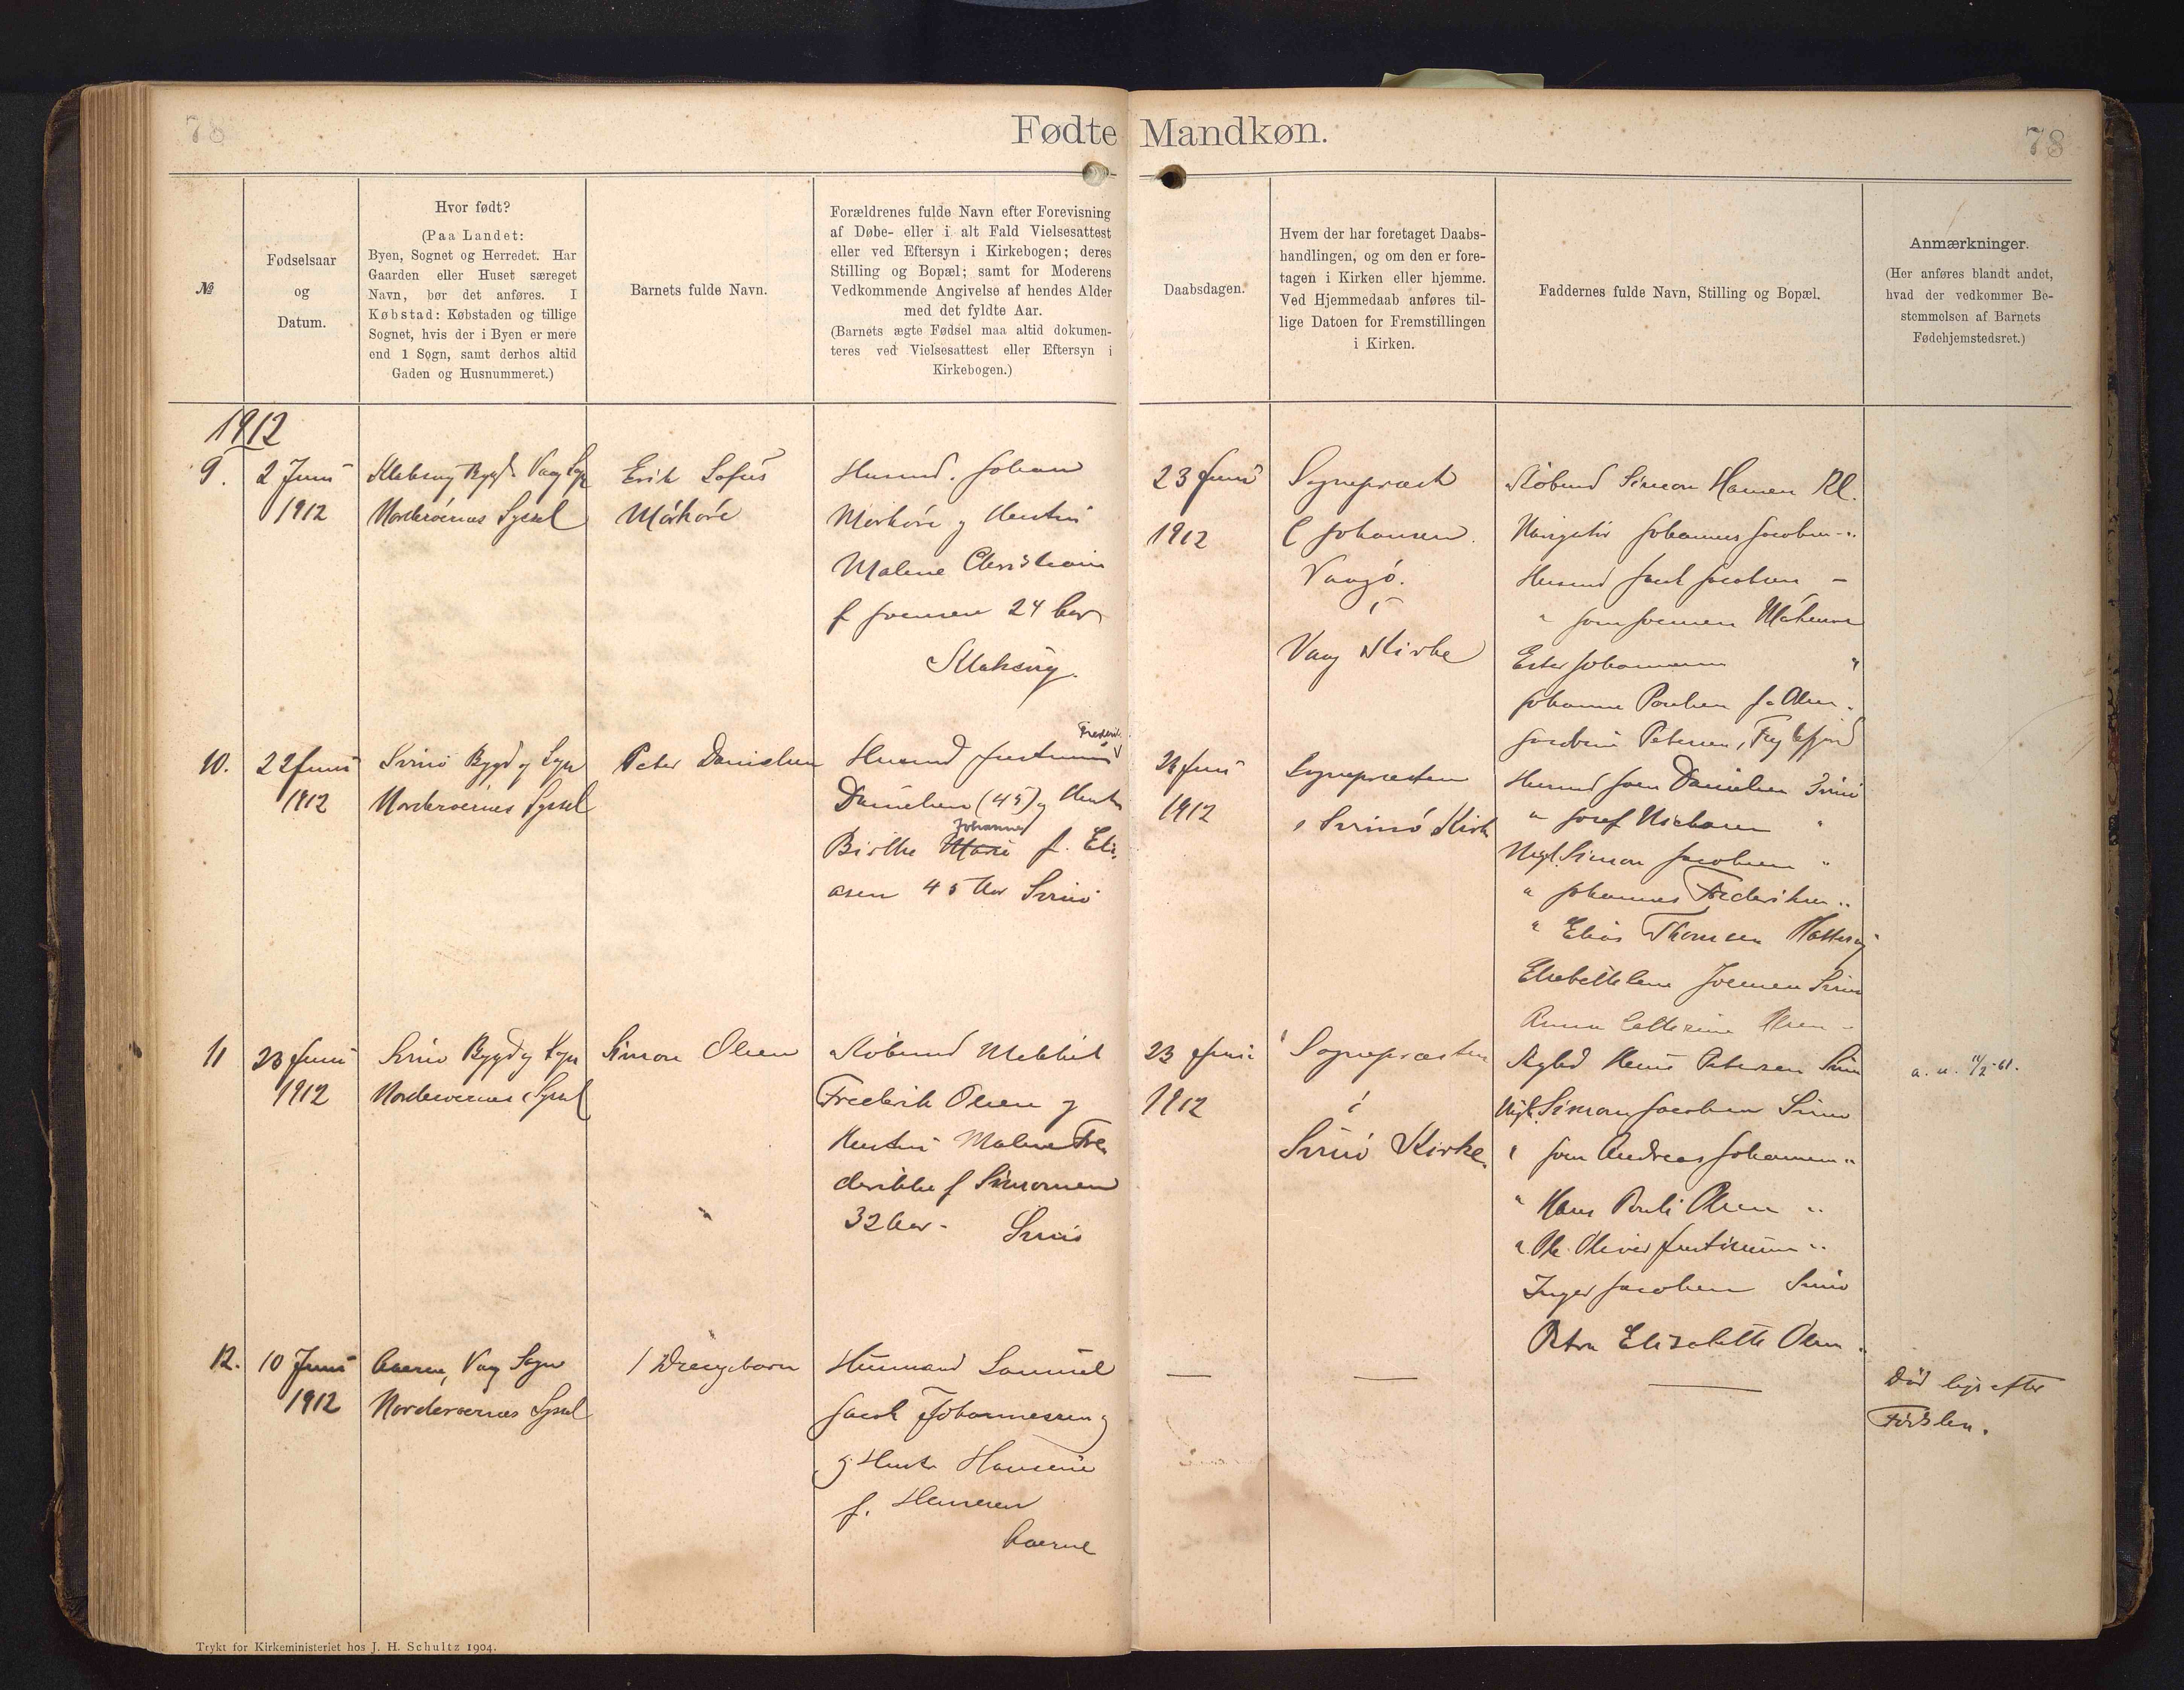 78
Fødte Mandkøn.
78
№
Fødselsaar
og
Datum.
Hvor født?
(Paa Landet:
Byen, Sognet og Herredet. Har
Gaarden eller Huset særeget
Navn, bør det anføres. I
Købstad: Købstaden og tillige
Sognet, hvis der i Byen er mere
end 1 Sogn, samt derhos altid
Gaden og Husnummeret.)
Barnets fulde Navn.
Forældrenes fulde Navn efter Forevisning
af Døbe- eller i alt Fald Vielsesattest
eller ved Eftersyn i Kirkebogen; deres
Stilling og Bopæl; samt for Moderens
Vedkommende Angivelse af hendes Alder
med det fyldte Aar.
(Barnets ægte Fødsel maa altid dokumen-
teres ved Vielsesattest eller Eftersyn i
Kirkebogen.)
Daabsdagen.
Hvem der har foretaget Daabs-
handlingen, og om den er fore-
tagen i Kirken eller hjemme.
Ved Hjemmedaab anføres til-
lige Datoen for Fremstillingen
i Kirken.
Faddernes fulde Navn, Stilling og Bopæl.
Anmærkninger.
(Her anføres blandt andet,
hvad der vedkommer Be-
stemmelsen af Barnets
Fødehjemstedsret.)
1912
9.
2 Juni
1912
Klaksvig Bygd Vaag Sogn
Norderöernes Syssel
Erik Sofus
Mörköre
Husmd. Johan
Mörköre og Hustru
Malene Christiane
f Joensen 24 Aar
Klaksvig.
23 Juni
1912
Sognepræst
C Johansen.
Vaag
i
Vaag Kirke
Købmd Simon Hansen Kl.
Johannes Jacobsen "
Husmd Jacob Jacobsen -
" Joen Joensen
Ester Johannesen "
Johanne Poulsen f. Olsen "
Petersen,
10.
22 Juni
1912
Svinö Bygd og Sogn
Norderöernes Syssel
Peter Danielsen
Husmd Justinus Frederik
Danielsen (45) og Hustru
Birthe Marie Johanne f. Eli-
asen 45 Aar Svinö
23 Juni
1912
Sognepræsten
i Svinö Kirke
Husmd Joen Danielsen Svinö
" Josef "
Ungk. Simon Jacobsen "
" Johannes Frederiksen "
" Elias Thomsen Hattervig
Elsebeth Lena Joensen Svinö
Anna Cathrine Olsen "
11
23 Juni
1912
Svinö Bygd og Sogn
Norderöernes Syssel
Simon Olsen
Købmd Mikkel
Frederik Olsen og
Hustru Malene Fre-
derikke f Simonsen
32 Aar - Svinö
23 Juni
1912
Sognepræsten
i
Svinö Kirke.
Petersen Svinö
Ungk. Simon Jacobsen Svinö
" Joen Andreas Johannesen "
" Hans Pauli Olsen "
" Ole Oliver Justinussen "
Inger Jacobsen Svinö
Petra Elisabeth Olsen "
a. u. 11/2-61.
12.
10 Juni
1912
Aaerne, Vaag Sogn
Norderöernes Syssel
1 Drengebarn
Husmand Samuel
Jacob Johannesen
og Hustru Hansine
f. Hansen
Aaerne
Död lige efter
Födslen.
Trykt for Kirkeministeriet hos J. H. Schultz 1904.